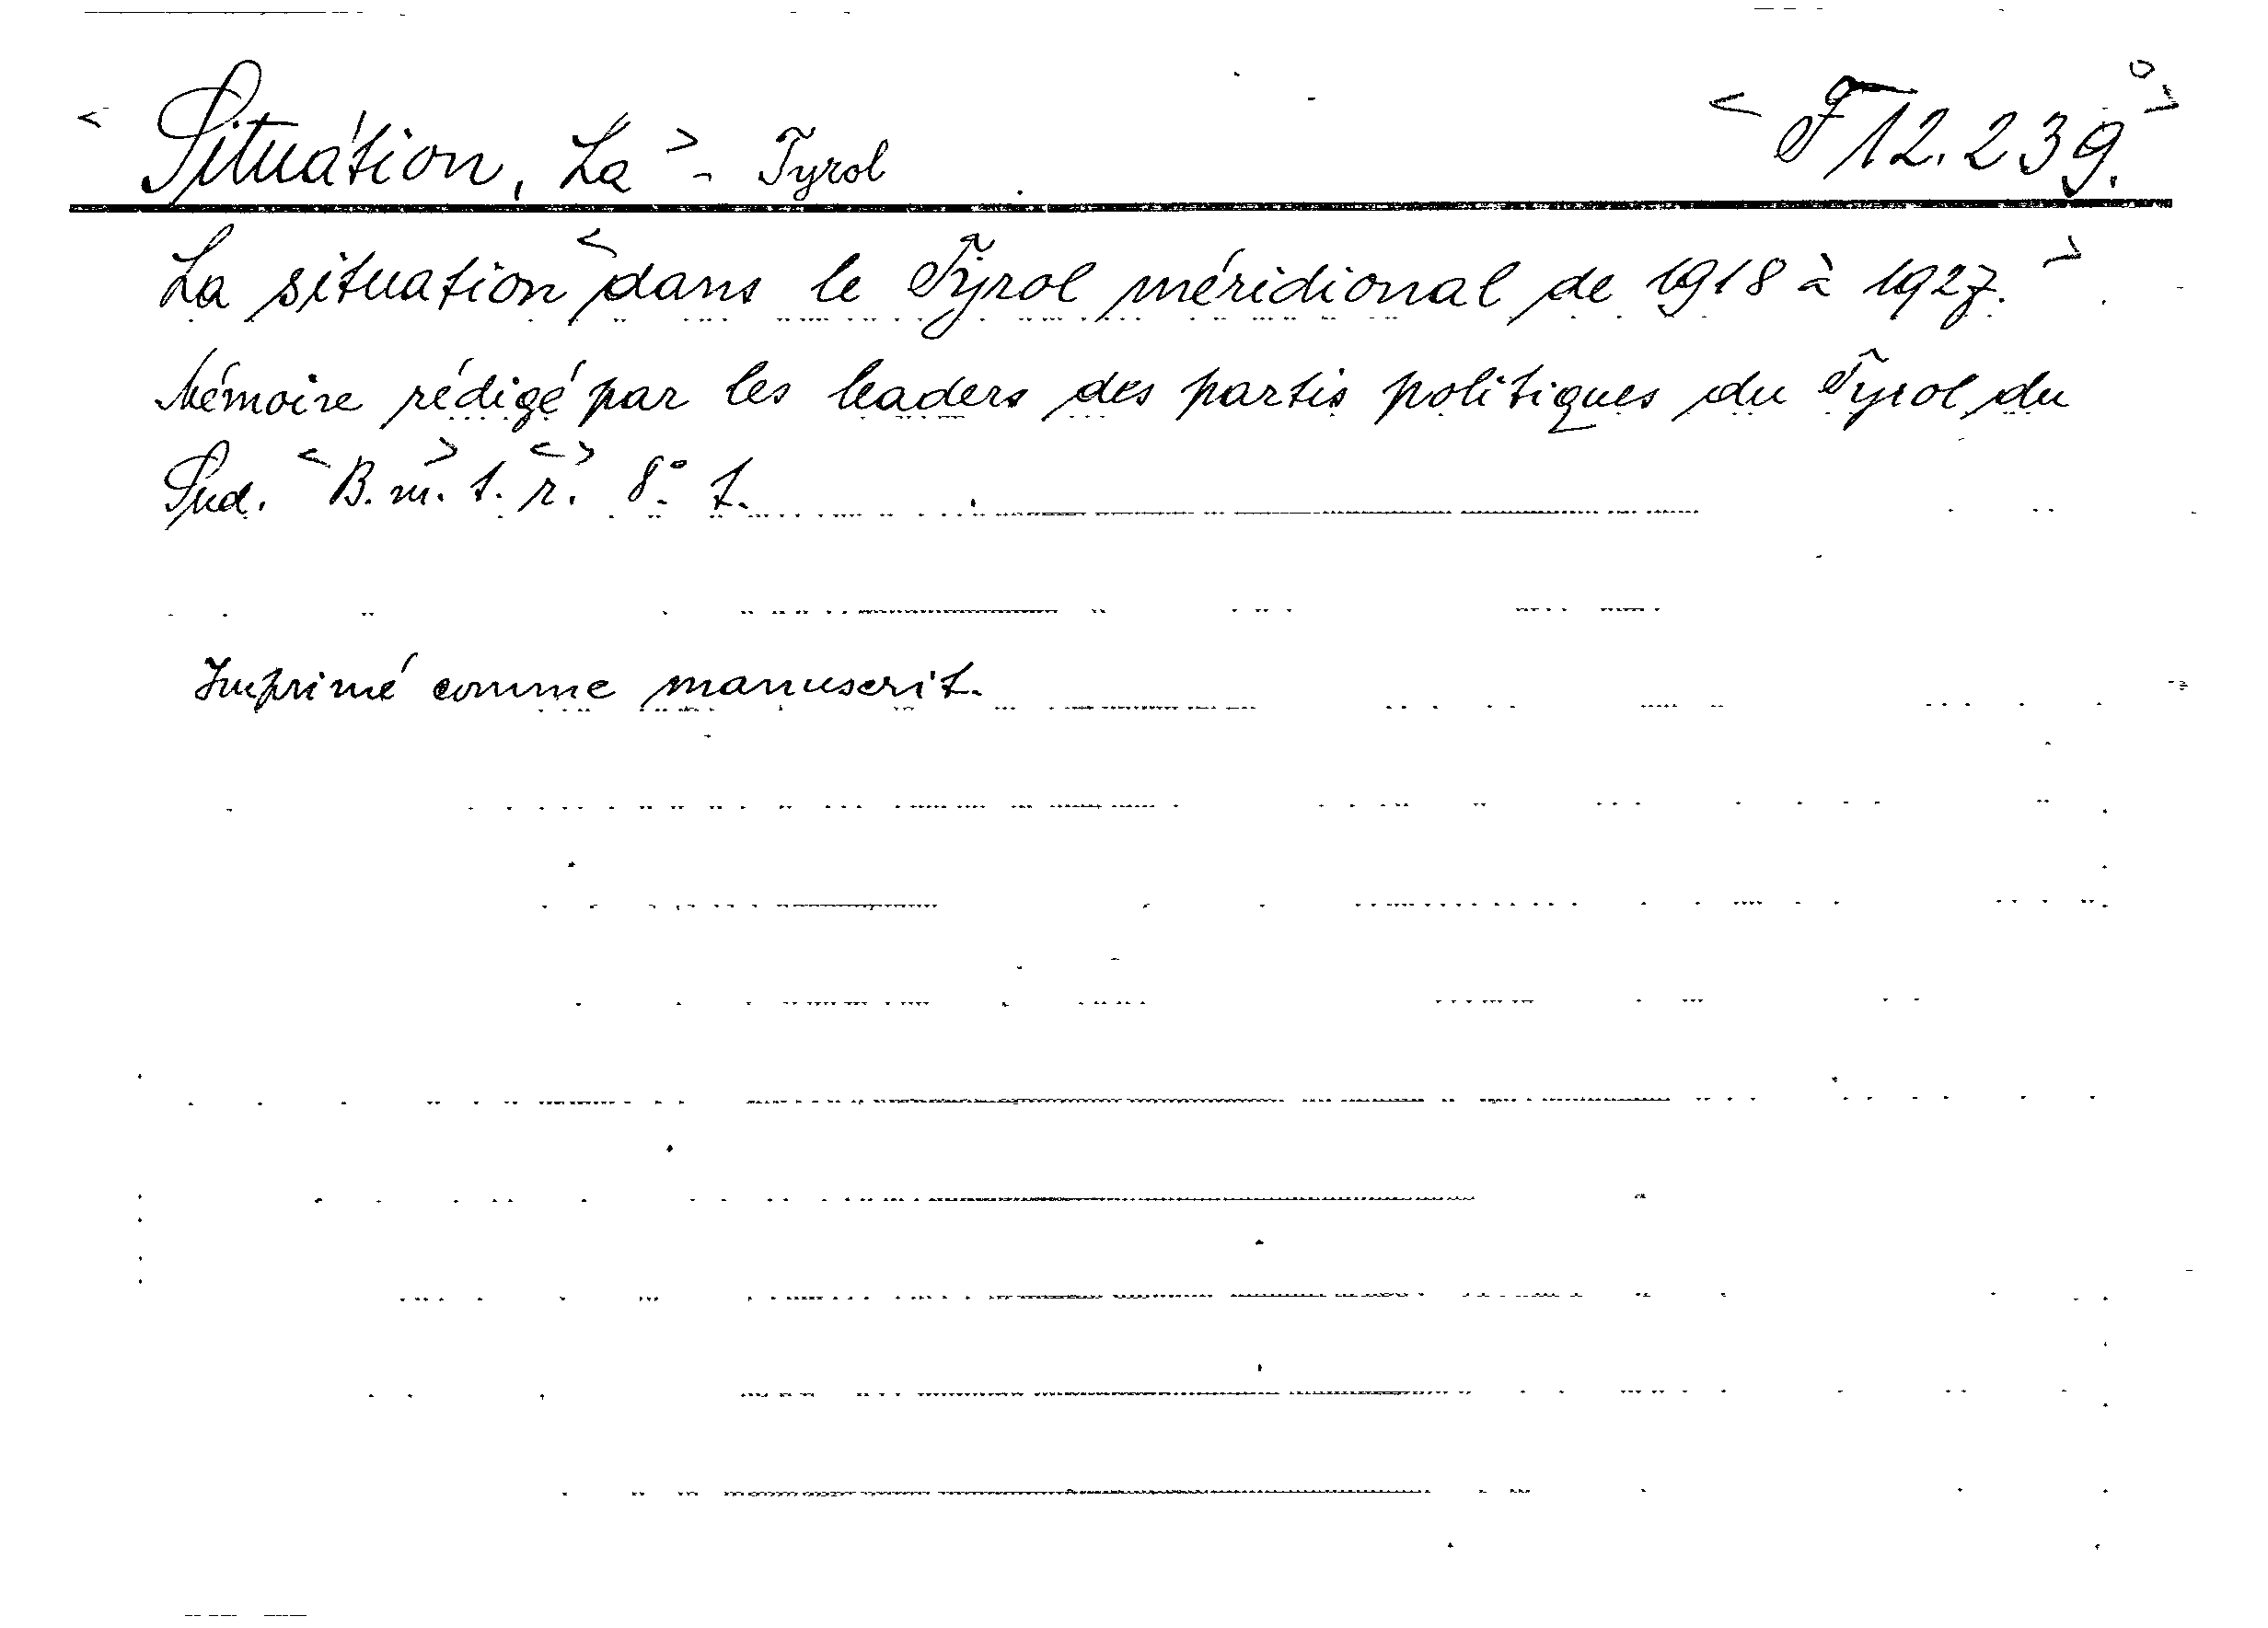 < Situation, La > - Tyrol < F 12.239. >
La situation < dans le Tyrol méridional de 1918 à 1927. >
Mémoire rédigé par les leaders des partis politiques du Tyrol du
Sud. < B. m. > t. < r. > 8°.
Imprimé comme manuscrit.